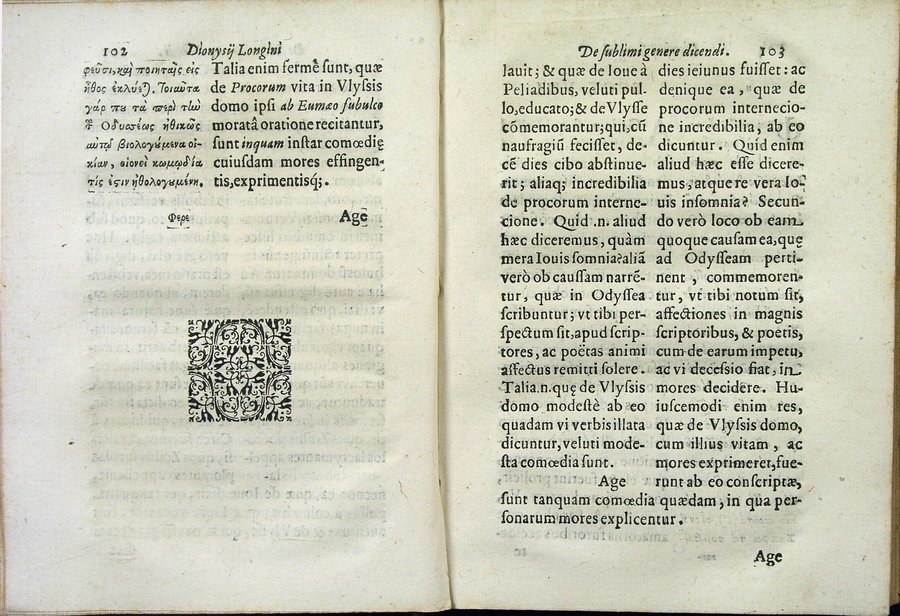 102
Dionysij Longini
φεῦσι, καὶ ποιηταῖς εἰς
ἦθος ἐκλύε). Τοιαῦτα
γάρ που τὰ περὶ τὴν
τ Ὀδυσσέως ἠθικῶς
αὐτῷ βιολογούμενα οἰ-
κίαν, οἱονεὶ κωμῳδία
τίς ἐστιν ἠθολογουμένη.
Φερε
Talia enim fermè sunt, quæ
de Procorum vita in Vlyssis
domo ipsi ab Eumæo subulco
moratâ oratione recitantur,
sunt inquam instar comœdię
cuiusdam mores effingen-
tis, exprimentisq;.
Age
De sublimi genere dicendi.
103
lauit; & quæ de Ioue à
Peliadibus, veluti pul-
lo, educato; & de Vlysse
cõmemorantur; qui, cũ
naufragiũ fecisset, de-
cẽ dies cibo abstinue-
rit; aliaq; incredibilia
de procorum interne-
cione. Quid .n. aliud
hæc diceremus, quàm
mera Iouis somnia? aliã
verò ob caussam narrẽ-
tur, quæ in Odyssea
scribuntur; vt tibi per-
spectum sit, apud scrip-
tores, ac poëtas animi
affectus remitti solere.
Talia .n. quę de Vlyssis
domo modestè ab eo
quadam vi verbis illata
dicuntur, veluti mode-
sta comœdia sunt.
Age
dies ieiunus fuisset: ac
denique ea, quæ de
procorum internecio-
ne incredibilia, ab eo
dicuntur. Quid enim
aliud hæc esse dicere-
mus, atque re vera Io-
uis insomnia? Secun-
do verò loco ob eam
quoque causam ea, quę
ad Odysseam perti-
nent, commemoren-
tur, vt tibi notum sit,
affectiones in magnis
scriptoribus, & poëtis,
cum de earum impetu,
ac vi decessio fiat, in
mores decidere. Hu-
iuscemodi enim res,
quæ de Vlyssis domo,
cum illius vitam, ac
mores exprimeret, fue-
runt ab eo conscriptæ,
sunt tanquam comœdia quædam, in qua per-
sonarum mores explicentur.
Age